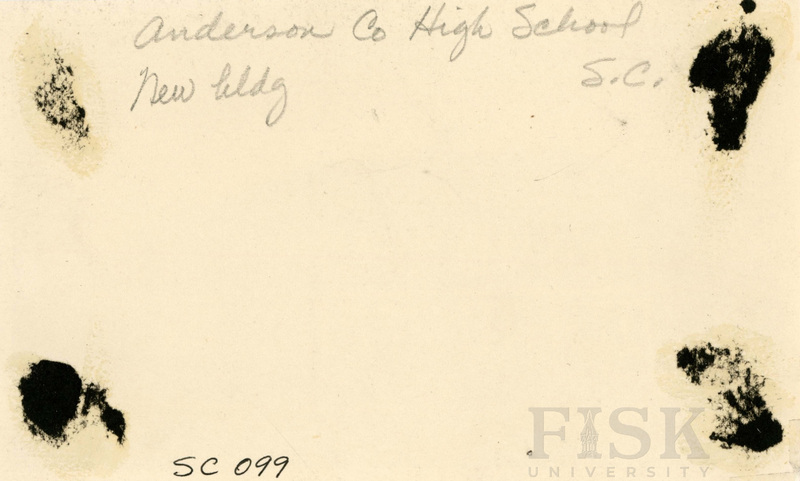 Anderson Co High School
New bldg S.C.
SC 099
FISK
UNIVERSITY